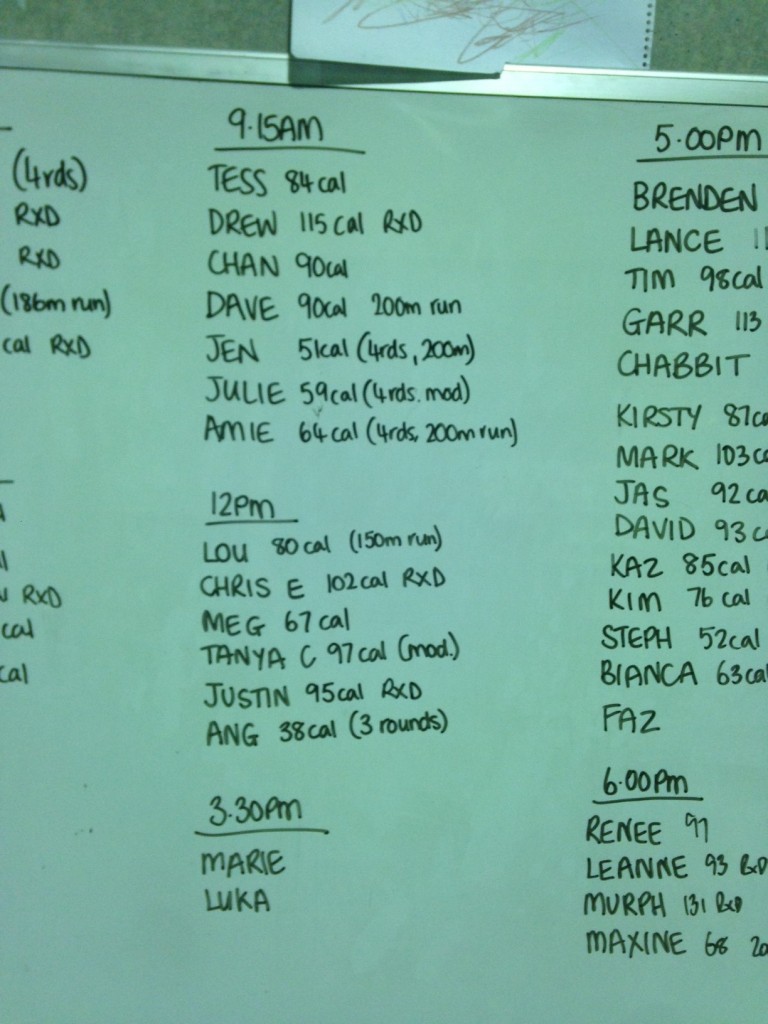 (4rds)
RXD
RXD
(186m run)
cal RXD
RXD
cal
cal
9.15AM
TESS 84cal
DREW 115cal RXD
CHAN 90cal
DAVE 90cal 200m run
JEN 51cal (4rds, 200m)
JULIE 59cal (4rds. mod)
AMIE 64cal (4rds, 200m run)
12pm
LOU 80cal (150m run)
CHRIS E 102cal RXD
MEG 67cal
TANYA C 97cal (mod.)
JUSTIN 95cal RXD
ANG 38cal (3 rounds)
3.30pm
MARIE
LUKA
5.00pm
BRENDEN
LANCE
TIM 98cal
GARR 113
CHABBIT
KIRSTY 87ca
MARK 103ca
JAS 92ca
DAVID 93c
KAZ 85cal
KIM 76cal
STEPH 52cal
BIANCA 63cal
FAZ
6.00pm
RENEE
LEANNE 93 RxD
MURPH 131 RxD
MAXINE 68